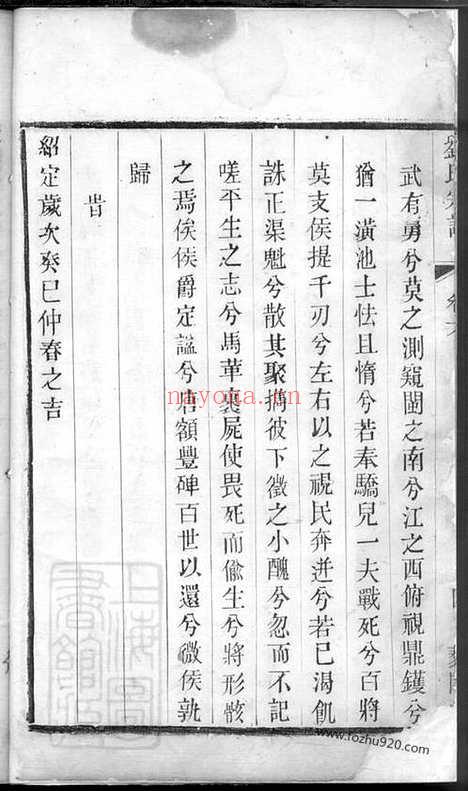 武有勇兮莫之測窺閩之南兮江之西俯視鼎鑊兮
猶一潢池士怯且惰兮若奉驕兒一夫戰死兮百將
莫支侯提千刃兮左右以之視民奔迸兮若已渴飢
誅正渠魁兮散其聚擣彼下徵之小醜兮忽而不記
嗟平生之志兮馬革裹屍使畏死而偷生兮將形骸
之焉俟侯爵定謚兮君額豐碑百世以還兮微侯孰
歸
旹
紹定歲次癸巳仲春之吉
上海圖書館藏
nayona.cn
www.fozhu920.com